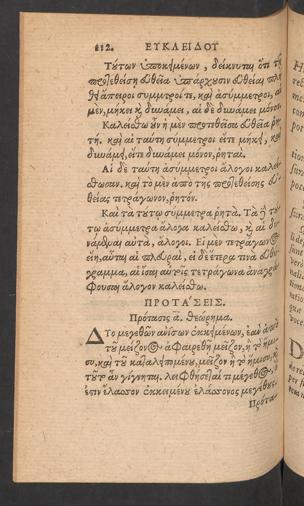 212. ΕΥΚΛΕΙΔΟΥ
Τύτων ὑποκημένων, δείκνυται ὅτι τῇ
προτεθείσῃ εὐθείᾳ ὑπάρχυσιν εὐθεῖαι πλή
θῃ ἄπειροι σύμμετροί τε, καὶ ἀσύμμετροι, αἱ
μὲν, μήκει καὶ δυνάμει, αἱ δὲ δυνάμει μόνον.
Καλείσθω οὖν ἡ μὲν προτεθεῖσα εὐθεῖα ῥη
τή. καὶ αἱ ταύτῃ σύμμετροι εἴτε μήκῃ, καὶ
δυνάμῃ, εἴτε δυνάμει μόνον, ῥηταί.
Αἱ δὲ ταύτῃ ἀσύμμετροι ἄλογοι καλεί
σθωσαν. καὶ τὸ μὲν ἀπὸ τῆς προτεθείσης εὐ
θείας τετράγωνον, ῥητόν.
Καὶ τὰ τύτω σύμμετρα ῥητά. Τὰ δὲ τύ
τῳ ἀσύμμετρα ἄλογα καλείσθω, καὶ αἱ δυ
νάμδμαι αὐτὰ, ἄλογοι. Εἰ μὲν τετράγωνα
εἴη, αὗται αἱ πλευραὶ, εἰ δὲ ἕτερα τινὰ εὐθύ
γραμμα, αἱ ἴσαι αὐτοῖς τετράγωνα ἀναγρά
φουσαι ἄλογον καλείσθω.
ΠΡΟΤΑΣΕΙΣ.
Πρότασις α. θεώρημα.
Δύο μεγεθῶν ἀνίσων ἐκκημένων, ἐὰν ἀπὸ
τῦ μείζονος ἀφαιρεθῇ μεῖζον, ἢ τὸ ἥμι
συ, καὶ τῦ καταλειπομένυ, μεῖζον ἢ τὸ ἥμισυ, καὶ
τῦτο ἀεὶ γίγνηται. λειφθήσεταί τι μέγεθος, ὅ
ἐστιν ἔλασσον ἐκκειμένυ ἐλάσσονος μεγέθυς.
Πρότα-